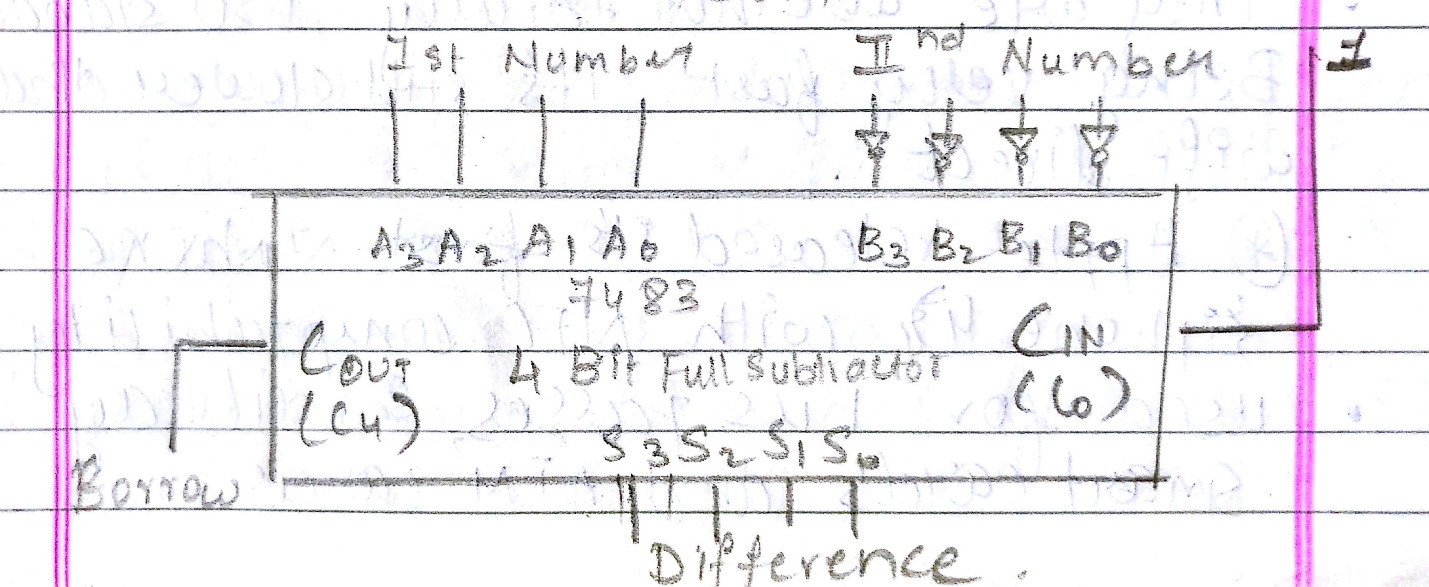 1st Number IInd Number 1
A3 A2 A1 A0 B3 B2 B1 B0
7483
COUT 4 Bit Full Subtractor CIN
(C4) (C0)
S3 S2 S1 S0
Borrow
Difference.